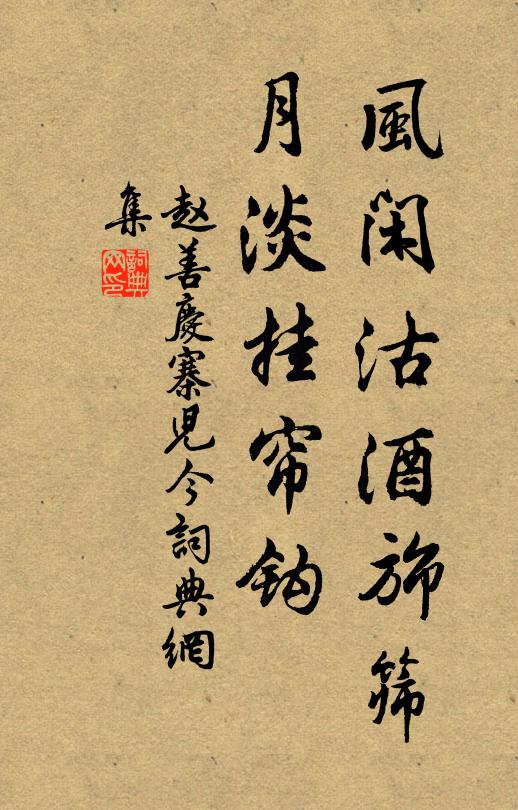 風閑沽酒旆篩
月淡挂帘鈎
赵善慶寨兒今詞典網
集
詞典
网印